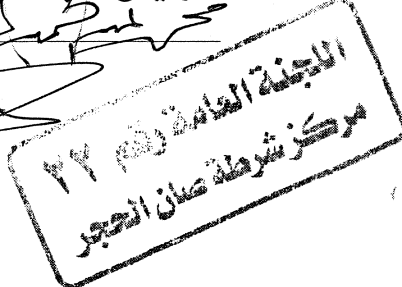 اللجنة العامة رقم ٢٢
مركز شرطة صان الحجر